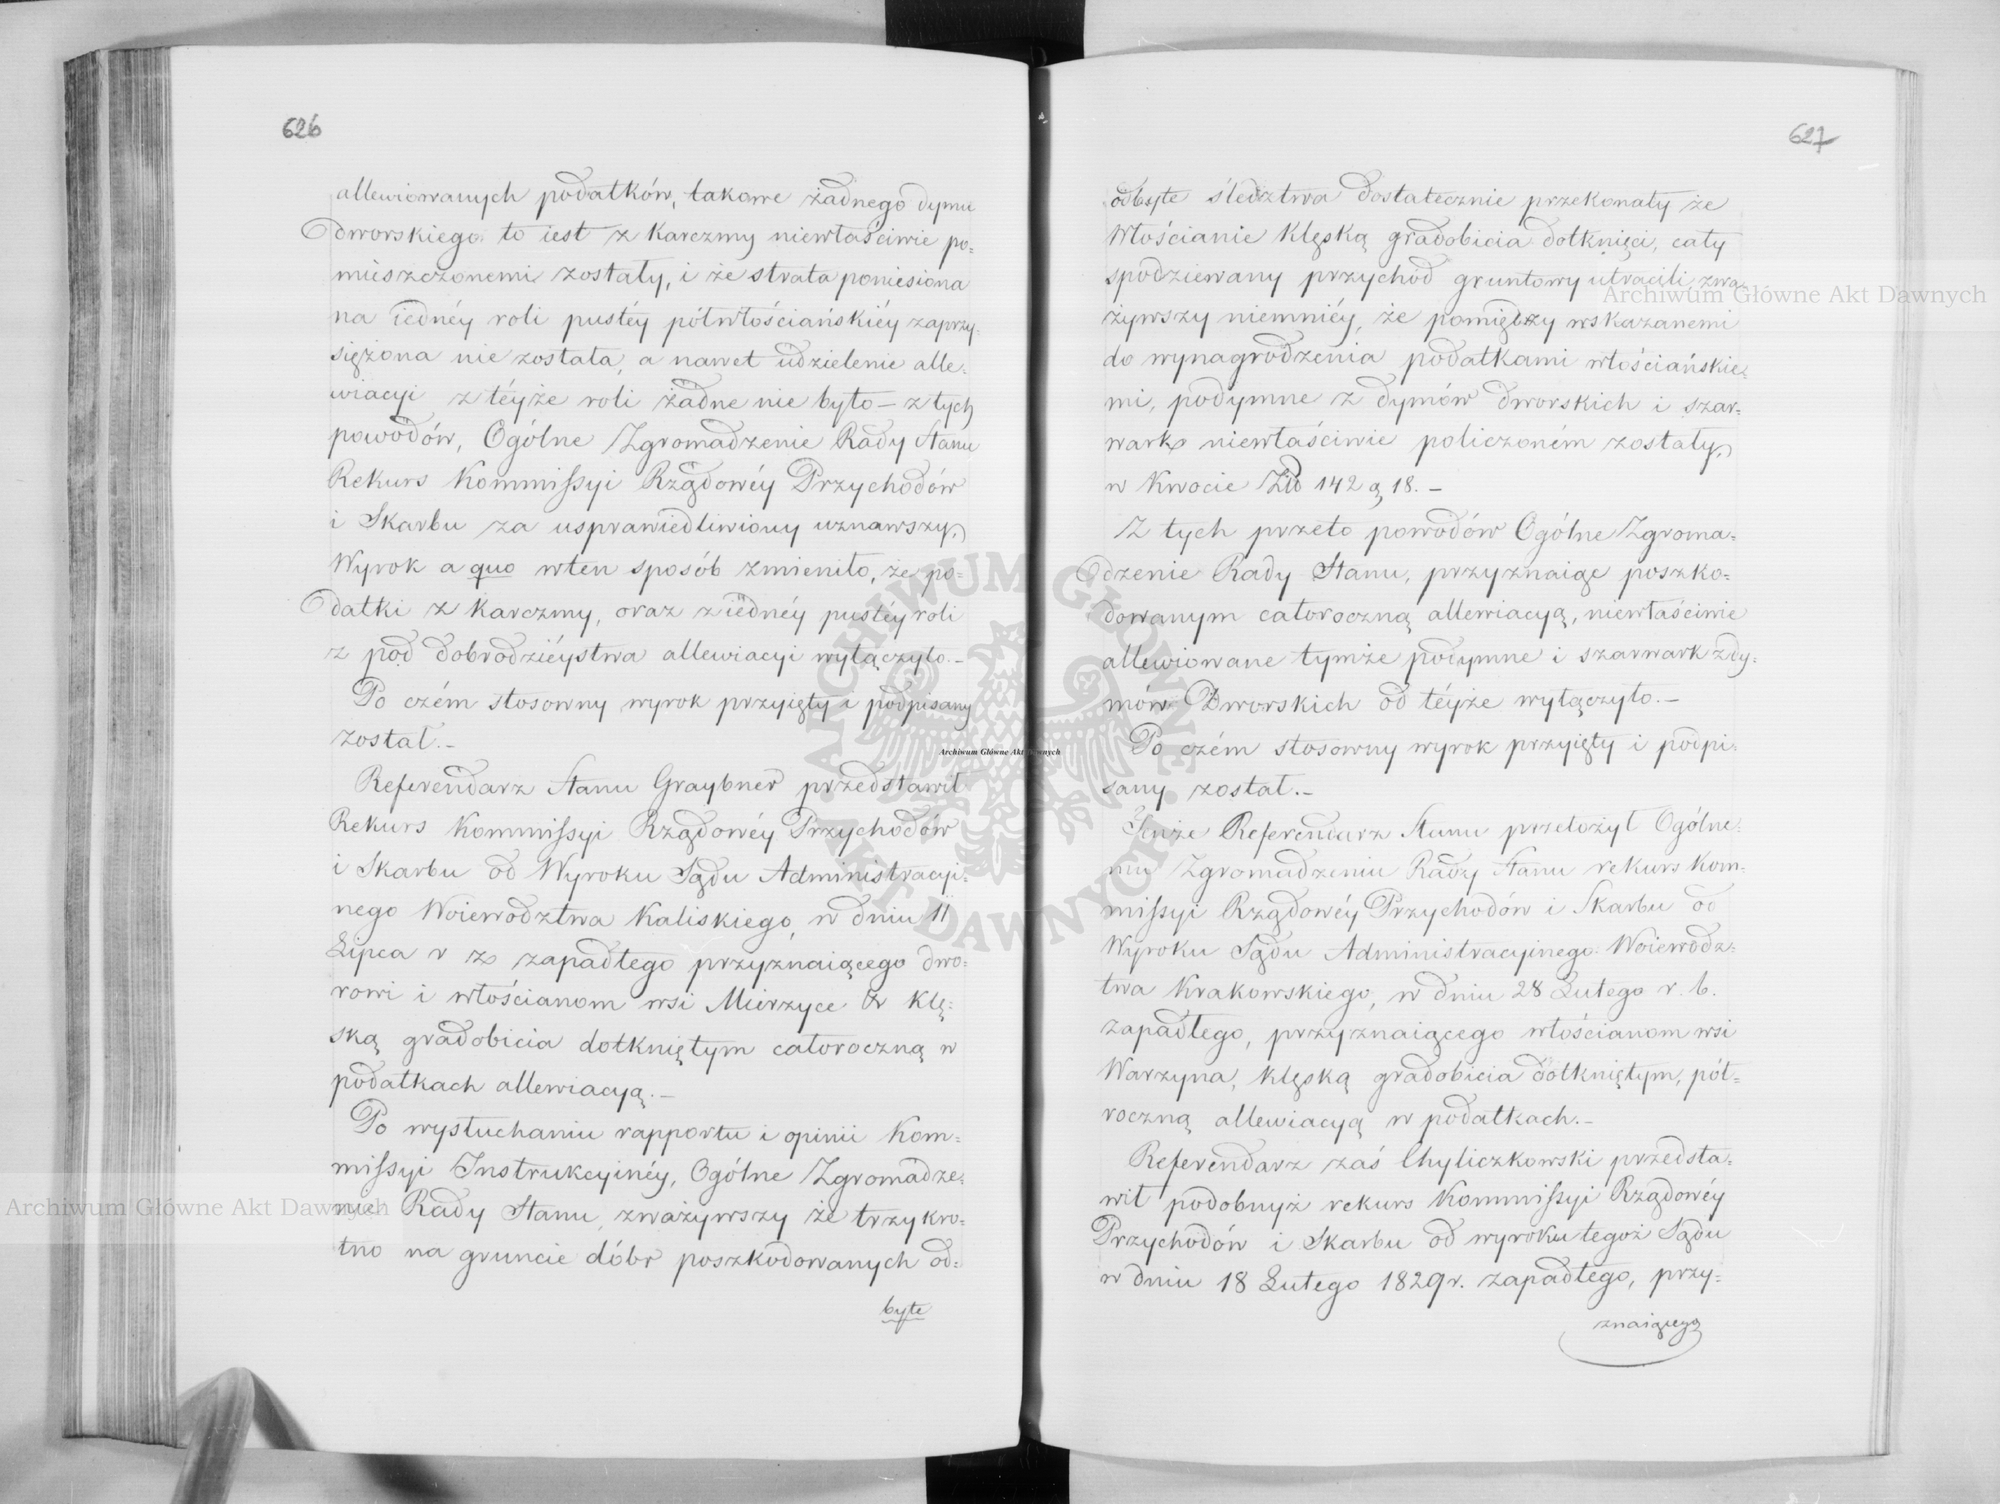 626
allewiowanych podatków, takowe żadnego dymu
dworskiego to iest z Karczmy niewłaściwie po=
mieszczonemi zostały, i że strata poniesiona
na iednéy roli pustéy półwłościańskiéy zaprzy=
siężona nie została, a nawet udzielenie alle=
wiacyi z téyże roli żadne nie było – z tych
powodów, Ogólne Zgromadzenie Rady Stanu
Rekurs Kommissyi Rządowéy Przychodów
i Skarbu za usprawiedliwiony uznawszy,
Wyrok a quo wten sposób zmieniło, że po=
datki z Karczmy, oraz z iednéy pustéy roli
z pod dobrodziéystwa allewiacyi wyłączyło.–
Po czém stosowny wyrok przyięty i podpisany
został.–
Referendarz Stanu Graybner przedstawił
Rekurs Kommissyi Rządowéy Przychodów
i Skarbu od Wyroku Sądu Administracyi=
nego Woiewództwa Kaliskiego, w dniu 11
Lipca r z zapadłego przyznaiącego dwo=
rowi i włościanom wsi Mierzyce Kę=
ską gradobicia dotkniętym całoroczną w
podatkach allewiacyą.–
Po wysłuchaniu rapportu i opinii Kom=
missyi Instrukcyinéy, Ogólne Zgromadze=
nie Rady Stanu, zważywszy że trzykro=
tno na gruncie dóbr poszkodowanych od=
byte
627
odbyte śledztwa dostatecznie przekonały że
Włościanie Klęską gradobicia dotknięci, cały
spodziewany przychód gruntowy utracili zwa=
żywszy niemniéy, że pomiędzy wskazanemi
do wynagrodzenia podatkami włościańskie=
mi, podymne z dymów dworskich i szar=
wark niewłaściwie policzoném zostały,
w Kwocie Złł 142 g 18.–
Z tych przeto powodów Ogólne Zgroma=
dzenie Rady Stanu, przyznaiąc poszko=
dowanym całoroczną allewiacyą, niewłaściwie
allewiowane tymże podymne i szarwark z dy=
mów Dworskich od téyże wyłączyło.–
Po czém stosowny wyrok przyięty i podpi=
sany został.–
Tenże Referendarz Stanu przełożył Ogólne=
mu Zgromadzeniu Rady Stanu rekurs Kom=
missyi Rządowéy Przychodów i Skarbu od
Wyroku Sądu Administracyinego Woiewódz=
twa Krakowskiego, w dniu 28 Lutego r. b.
zapadłego, przyznaiącego włościanom wsi
Warzyna, klęską gradobicia dotkniętym, pół=
roczną allewiacyą w podatkach.–
Referendarz zaś Chyliczkowski przedsta=
wił podobnyż rekurs Kommissyi Rządowéy
Przychodów i Skarbu od wyroku tegoż Sądu
w dniu 18 Lutego 1829 r. zapadłego, przy=
znaiącego
Archiwum Główne Akt Dawnych
Archiwum Główne Akt Dawnych
Archiwum Główne Akt Dawnych
ARCHIWUM GŁÓWNE AKT DAWNYCH